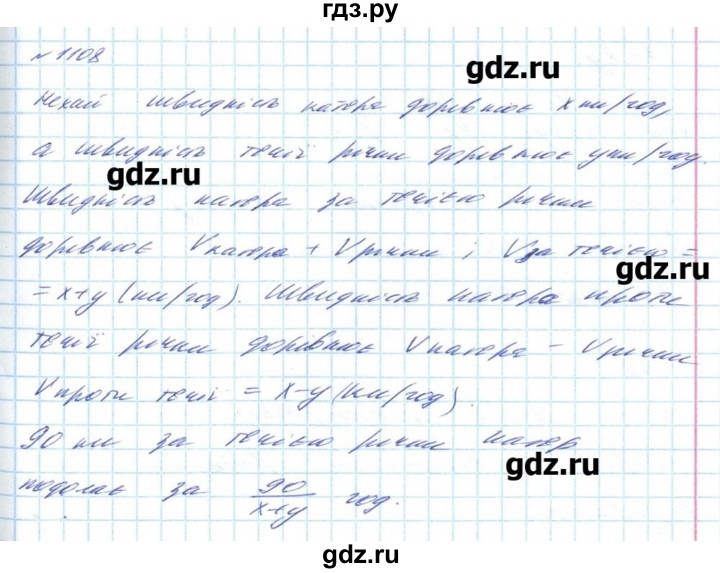 гдз.ру
№ 1108
gdz.ru
Нехай швидкість катера дорівнює х км/год,
а швидкість течії річки дорівнює y км/год.
gdz.ru
Швидкість катера за течією річки
дорівнює Vкатера + Vрічки ; Vза течією =
gdz.ru
= x+y (км/год). Швидкість катера проти
течії річки дорівнює Vкатера – Vрічки
Vпроти течії = x–y (км/год).
90 км за течією річки катер
gdz.ru
подолає за 90/(x+y) год.
gdz.ru